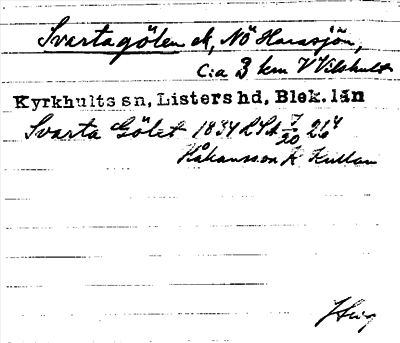 Svartagölen A, NÖ Harasjön,
c:a 3 km V Vilshult
Kyrkhults sn, Listers hd, Blek. län
Svarta Gölet 1834 LSA
Håkansson K Kullan